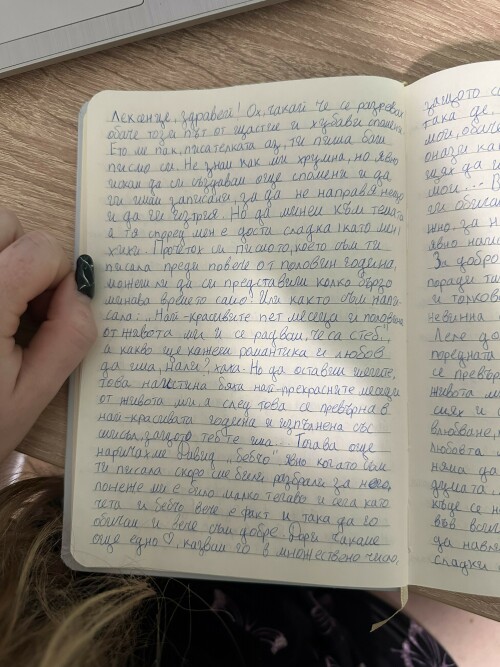 Лекенце, здравей! Ох, чакай че се разревах
обаче този път от щастие и хубави спомени.
Ето ме пак, писателката аз, ти пиша бая
писмо си. Не знам как ми хрумна, но явно
искам да си създавам още спомени и да
ги имам записани, за да не направя нещо
и да ги изтрия. Но да минем към темата
а тя според мен е доста сладка (като мен)
хихи. Прочетох си писмото, което съм ти
писала преди повече от половин година,
можеш ли да си представиш колко бързо
минава времето само! Или както съм напи-
сала: „Най-красивите пет месеца и половина
от живота ми и се радвам, че са с теб",
а какво ще кажеш романтика и любов
да има, нали? хаха. Но да оставим шегите,
това наистина бяха най-прекрасните месеци
от живота ми, а след това се превърна в
най-красивата година и изпълнена със
смисъл, защото теб те има... Тогава още
наричахме Давид „бебчо" явно когато съм
ти писала скоро сме били разбрали за него,
понеже ми е било малко тегаво и сега като
чета и бебчо вече е факт и така да го
обичам и вече съм добре. Дори чакаме
още едно ♡, казвам го в множествено число,
защото с
така де,
мой, обаче
онази ка
щях да
мой... В
ги обича
жно, за н
явно напис
За добро
поради т
и толков
невинна
Леле до
поредната
се превър
живота м
смях и
влюбване,
любовта
няма да
думата
къде се н
във всич
да навл
сладки